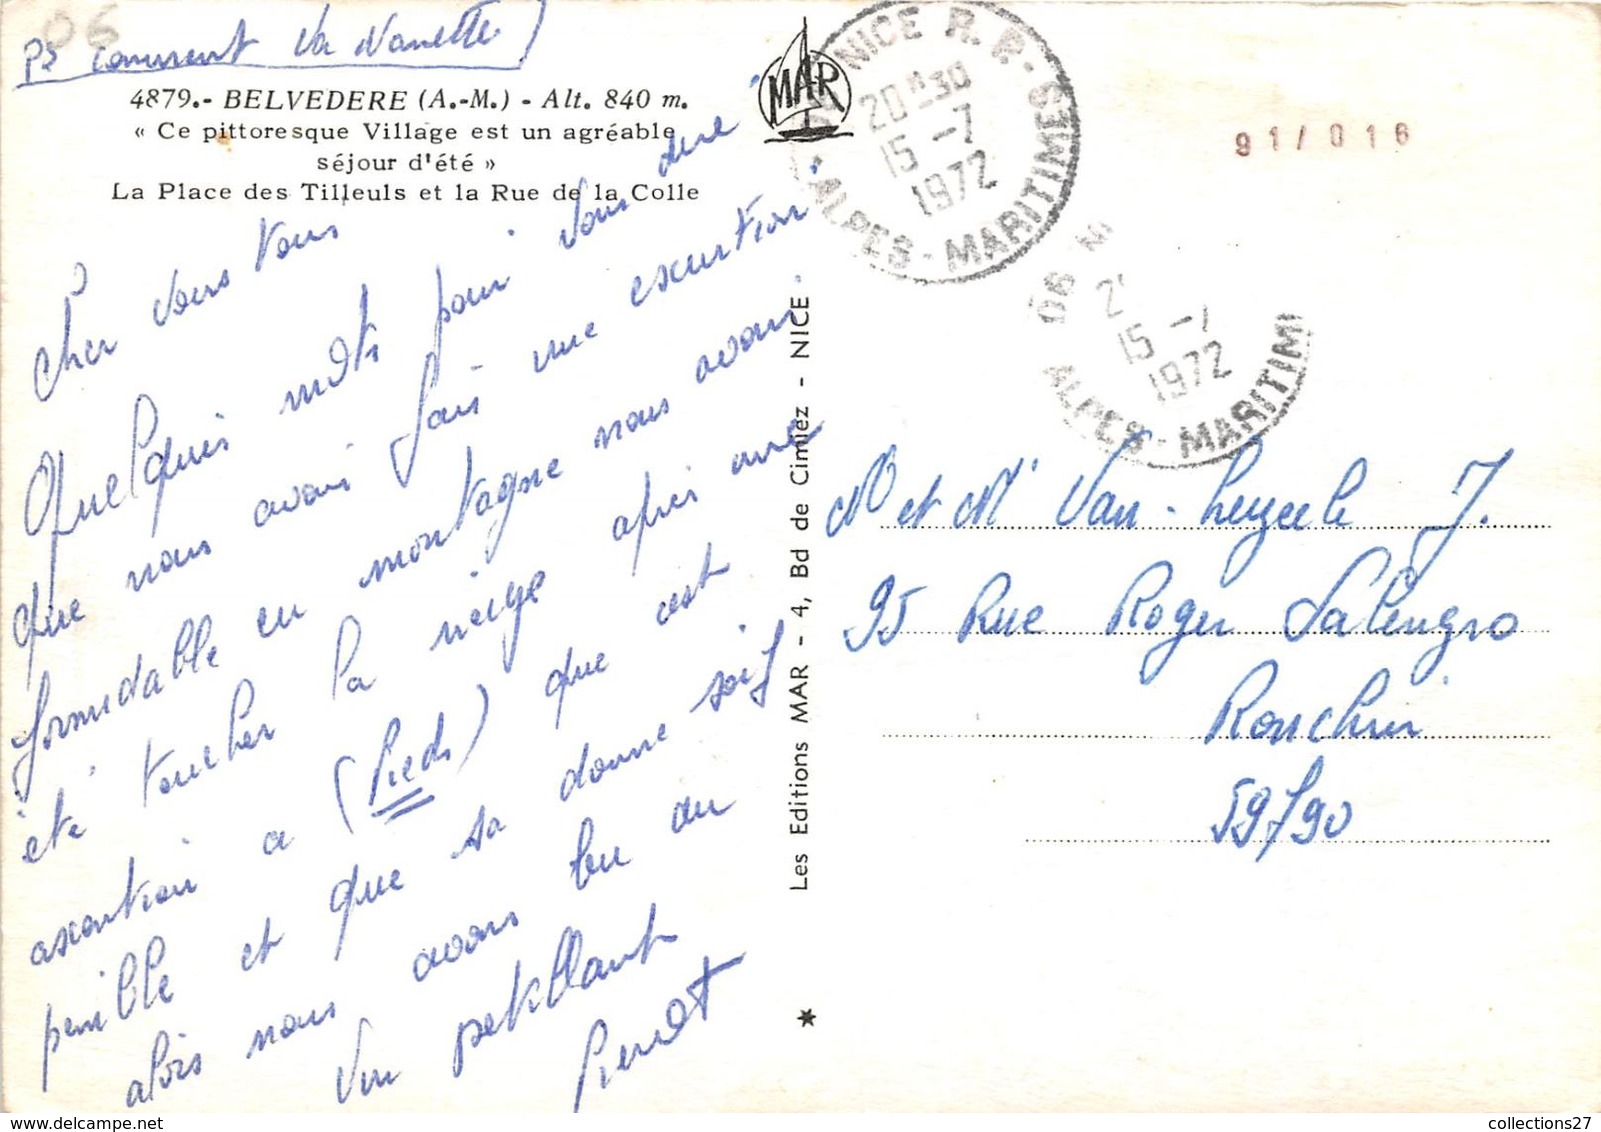 06
PS comment va Nanette
4879.- BELVEDERE (A.-M.) - Alt. 840 m.
« Ce pittoresque Village est un agréable
séjour d'été »
La Place des Tilleuls et la Rue de la Colle
Cher vous tous
Quelques mots pour vous dire
que nous avons fais une excurtion
formidable en montagne nous avons
été toucher la neige apres une
ascention a (Pieds) que c'est
penible et que sa donne soif
alors nous avons bu du
Vin petillant
MAR
Les Editions MAR - 4, Bd de Cimiez - NICE
NICE R. P.
20H30
15 -7
1972
ALPES-MARITIMES
06
2
15 -7
1972
ALPES-MARITIM
91/016
M et Me Van-          J.
95 Rue Roger Salengro
Ronchin
59790
collections27